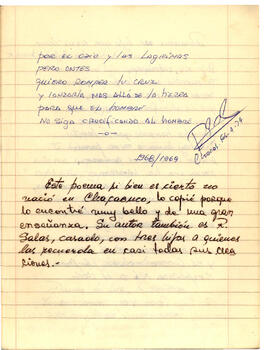 por el odio y las lágrimas
pero antes
quiero romper tu cruz
y lanzarla mas allá de la tierra
para que el hombre
no siga crucificando al hombre
-o-
1968/1969
Este poema si bien es cierto no
nació en Chacabuco, lo copié porque
lo encontré muy bello y de una gran
enseñanza. Su autor también es R.
Salas, casado, con tres hijos a quienes
los recuerda en casi todas sus crea
ciones.-